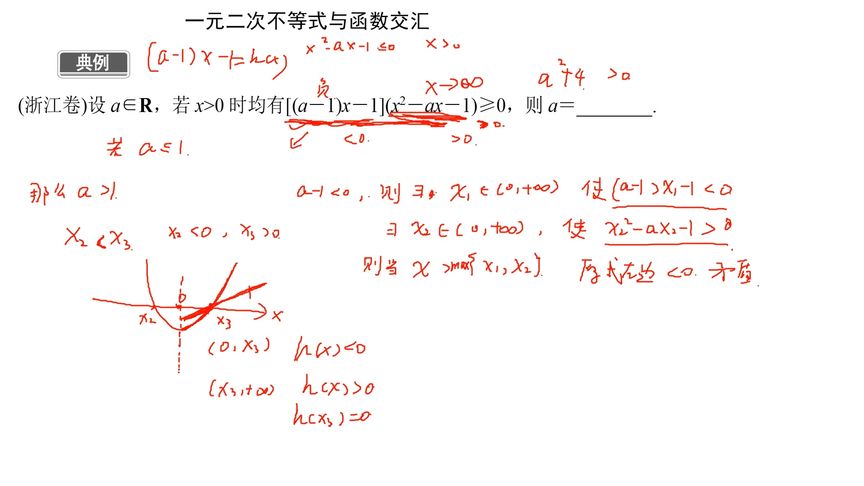 一元二次不等式与函数交汇
典例
(a-1)x-1=h(x)
x²-ax-1≤0 x>0
负 x→∞ a²+4>0
(浙江卷)设 a∈R，若 x>0 时均有[(a－1)x－1](x²－ax－1)≥0，则 a＝________.
<0. >0. ≥0.
若 a≤1.
那么 a>1.
a-1<0, 则∃ x₁∈(0,+∞) 使(a-1)x₁-1<0
x₂<x₃. x₂<0, x₃>0
∃ x₂∈(0,+∞), 使 x₂²-ax₂-1>0
则当 x>max{x₁,x₂}. 原式左边<0. 矛盾.
0
x₂ x₃ x
(0,x₃) h(x)<0
(x₃,+∞) h(x)>0
h(x₃)=0